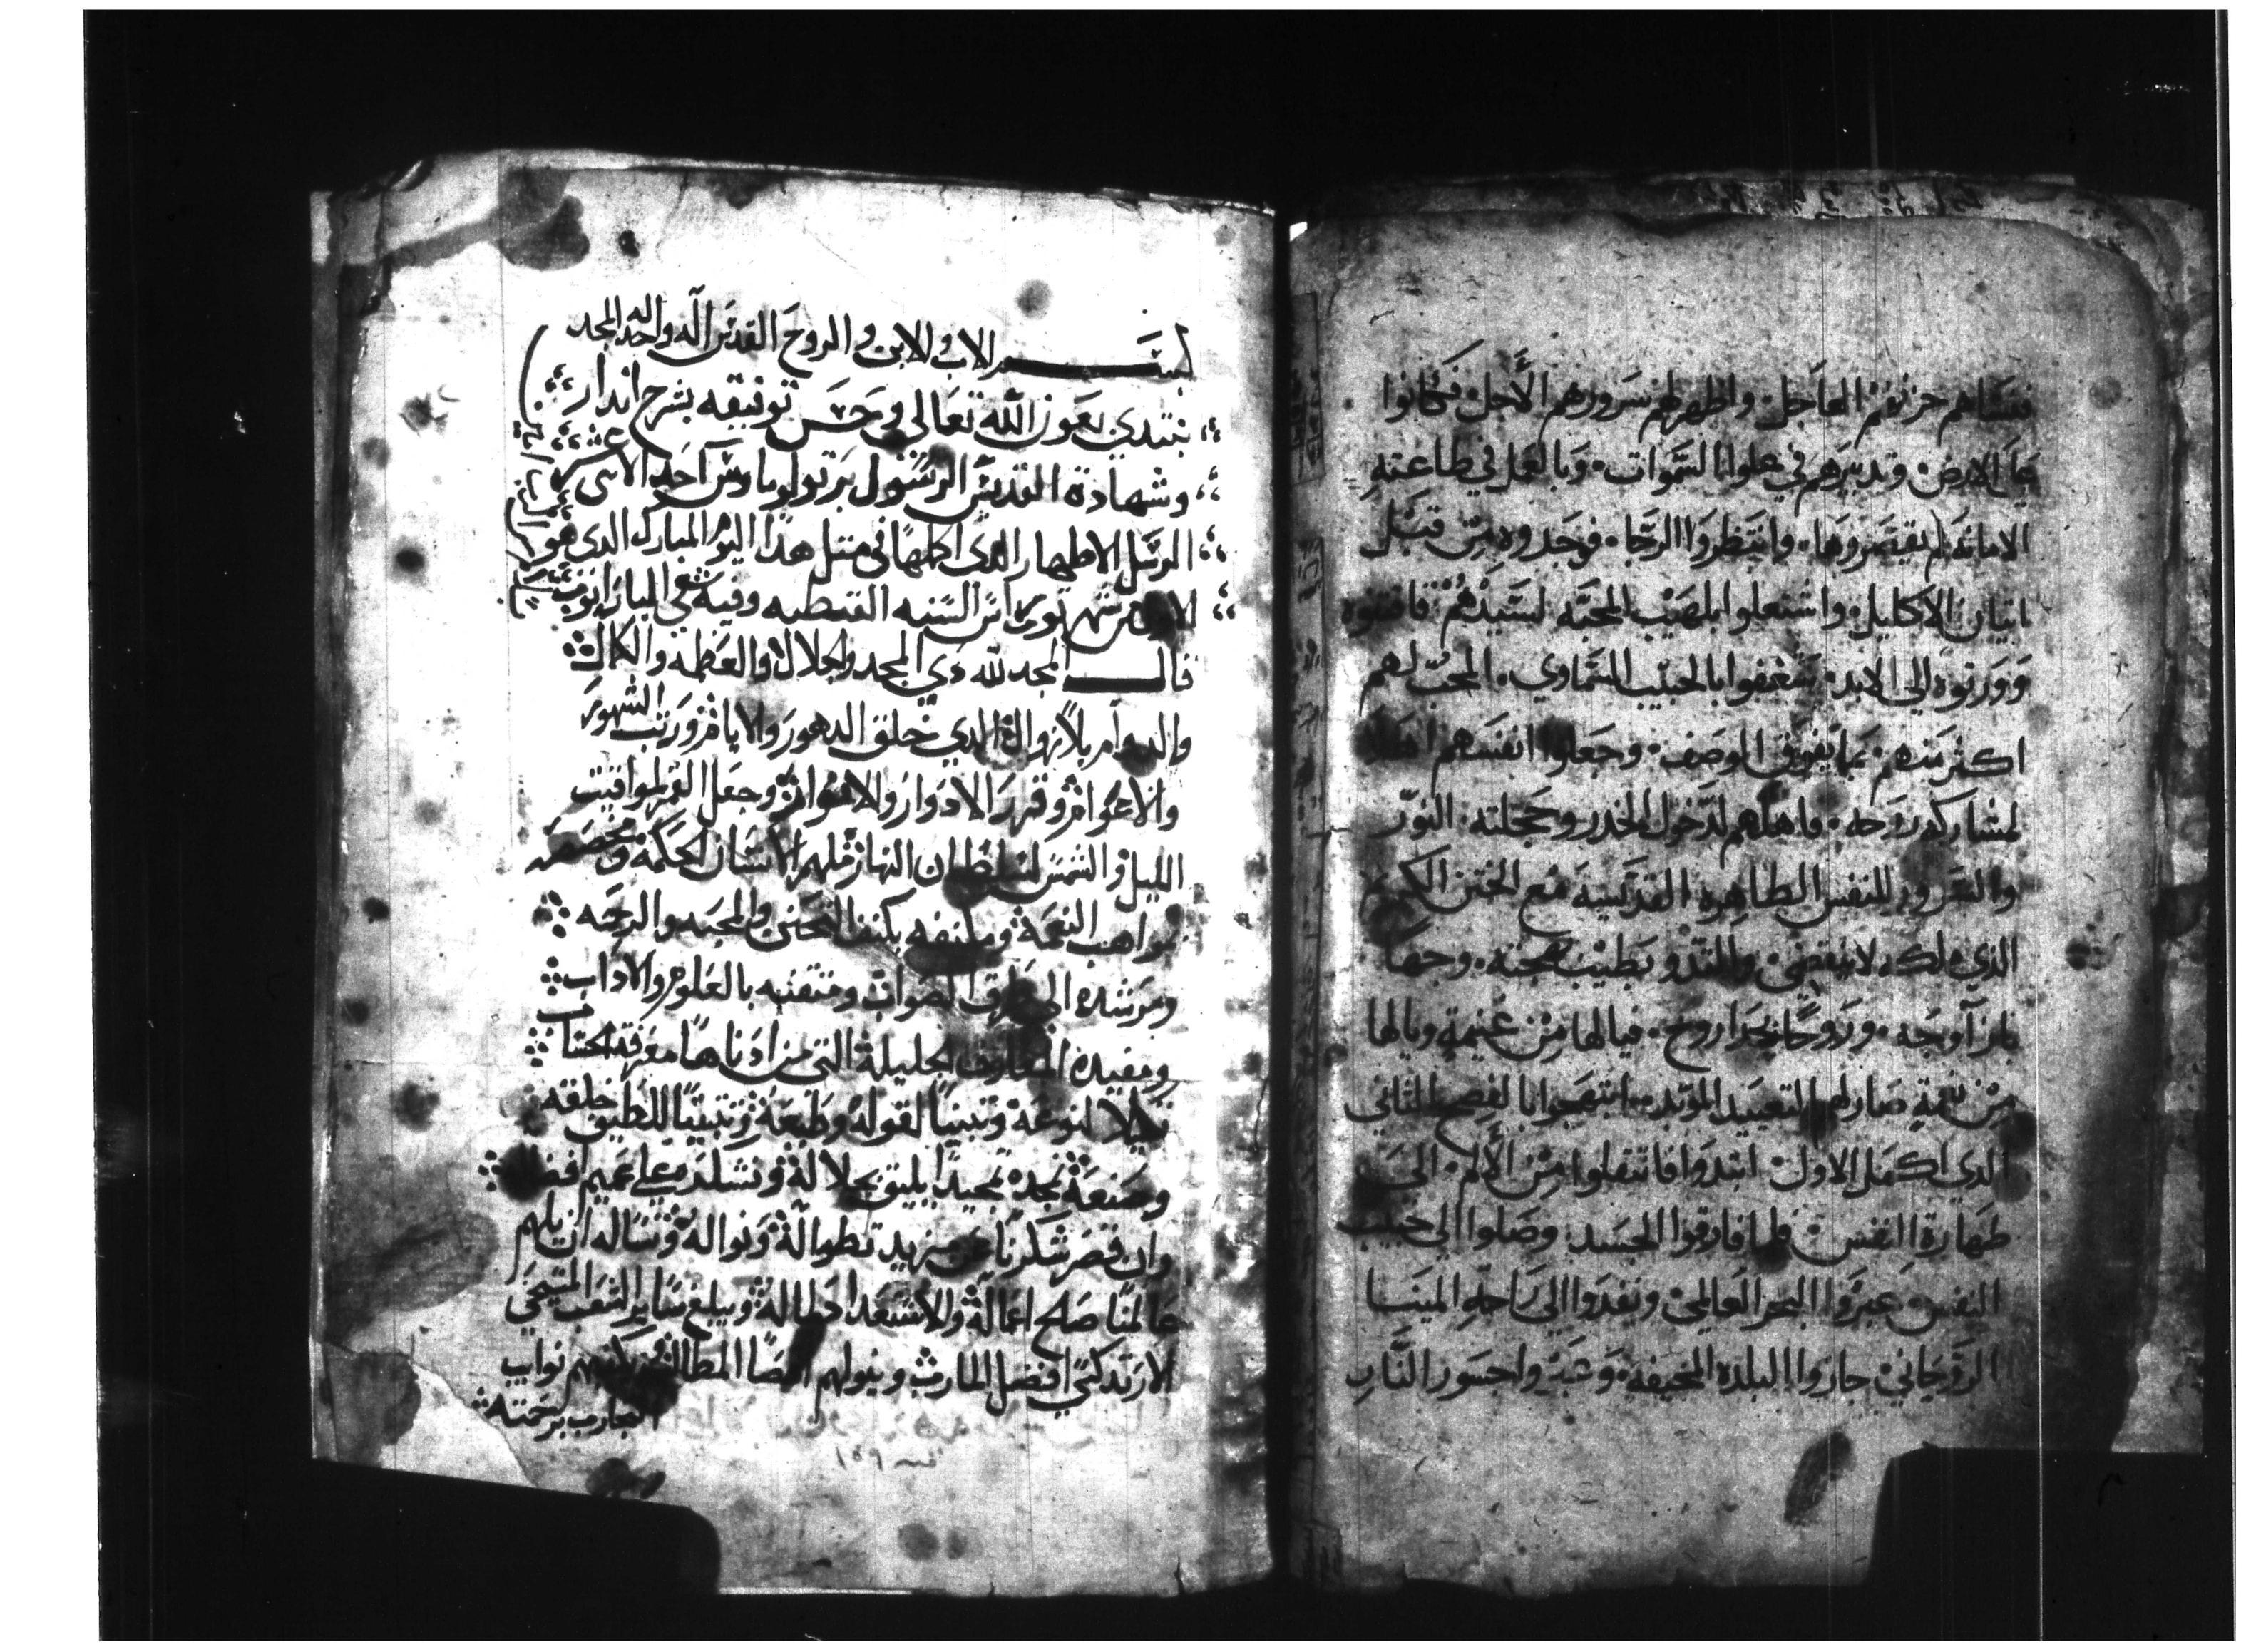 فنساهم حزنهم العاجل واظهر لهم سرورهم الآجل فكانوا
على الارض وتدبيرهم في علو السموات وبالعمل في طاعته
الامانه لم يقتصروها وانتظروا الرجا فوجدوه من قبل
اتيان الاكليل واشتعلوا بلهيب المحبه لسيدهم فاقتنوه
وورتوه الي الابد شغفوا بالحبيب السماوي المحب لهم
اكثر منهم بما يفوق الوصف وجعلوا انفسهم اهلا
لمشاركه روحه فاهلهم لدخول الخدر وحجلته النور
والسرور للنفس الطاهره القديسيه مع الختن الكريم
الذي ملكه لا ينقضي والتذو بطيب محبته وجها
بازآ وجه وروحًا بحدا روح فيا لها من غنيمة ويا لها
من صار لهم التعييد الموبد ابتهجوا بالفصح الثاني
الذي اكمل الاول ابتدوا فانتقلوا من الألم الى
طهارة النفس فلما فارقوا الجسد وصلوا الي حبيب
النفس عبروا البحر العالمي ونفدوا الي راحة المينا
الروحاني جازوا البلده المخيفه وجسور النار
بسم الاب والابن والروح القدس اله واحد له المجد
نبتدي بعون الله تعالى وحسن توفيقه بشرح اندار
وشهادة القديس الرسول برتولوماوس احد الاثنى عشر
الرسل الاطهار الذي اكملها في متل هدا اليوم المبارك الدي هو
الاول من شهر توت اس السنه القبطيه وفيه
قال المجد لله دي المجد والجلال والعظمه والكمال
والدوام بلا زوال الدي خلق الدهور والايام ورتب الشهور
والاعوام وقرر الادوار والاعوام وجعل القمر لمواقيت
الليل والشمس لسلطان النهار ملهم الانسان الحكمه ومخصصه
بمواهب النعمة ومكنفه بكنف التحنن والمحبه والرحمه
ومرشده الى طرق الصواب ومتقنه بالعلوم والاداب
ومفيده المعارف الجليلة التي من ادناها معرفة الكتاب
تكميلا لنوعه وتبيينًا لقوله وطبعه وتتبيتًا للطيف خلقه
وصنعه نمجده تمجيدًا يليق بجلاله ونشكره على عميم افضاله
وان قصر شكرنا عن مزيد تطوله ونواله ونساله ان يلهم
عالمنا صلح اعماله والاستعداد لماله ويبلغ ساير الشعب المسيحي
الارتدكسي افضل المارب وينولهم اقصا المطالب
برحمته